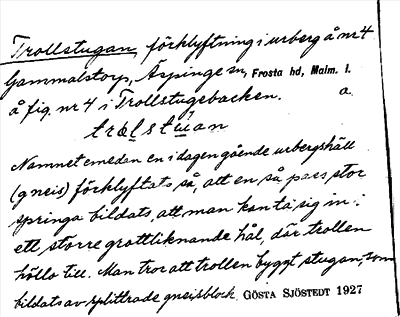 Trollstugan, förklyftning i urberg å nr 4
Gammalstorp, Äspinge sn, Frosta hd, Malm. l.
å fig. nr 4 i Trollstugebacken. a.
trålstúan
Namnet emedan en i dagen gående urbergshäll
(gneis) förklyftats så, att en så pass stor
springa bildats, att man kan ta sig in i
ett större grottliknande hål, där trollen
höllo till. Man tror att trollen byggt stugan, som
bildats av splittrade gneisblock. GÖSTA SJÖSTEDT 1927